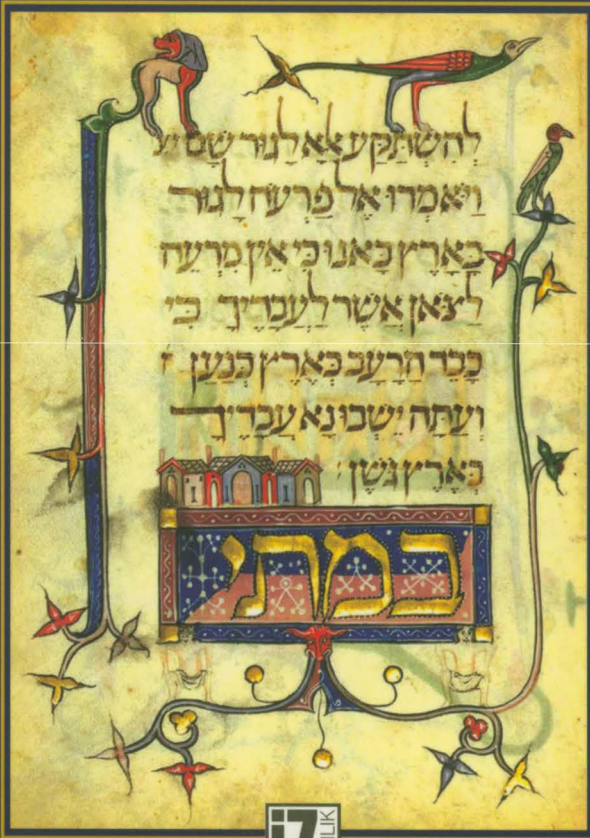 לְהִשְׁתַּקֵּעַ אֶלָּא לָגוּר שָׁם
וַיֹּאמְרוּ אֶל פַּרְעֹה לָגוּר
בָּאָרֶץ בָּאנוּ כִּי אֵין מִרְעֶה
לַצֹּאן אֲשֶׁר לַעֲבָדֶיךָ כִּי
כָבֵד הָרָעָב בְּאֶרֶץ כְּנָעַן
וְעַתָּה יֵשְׁבוּ נָא עֲבָדֶיךָ
בְּאֶרֶץ גֹּשֶׁן
במתי
LIK